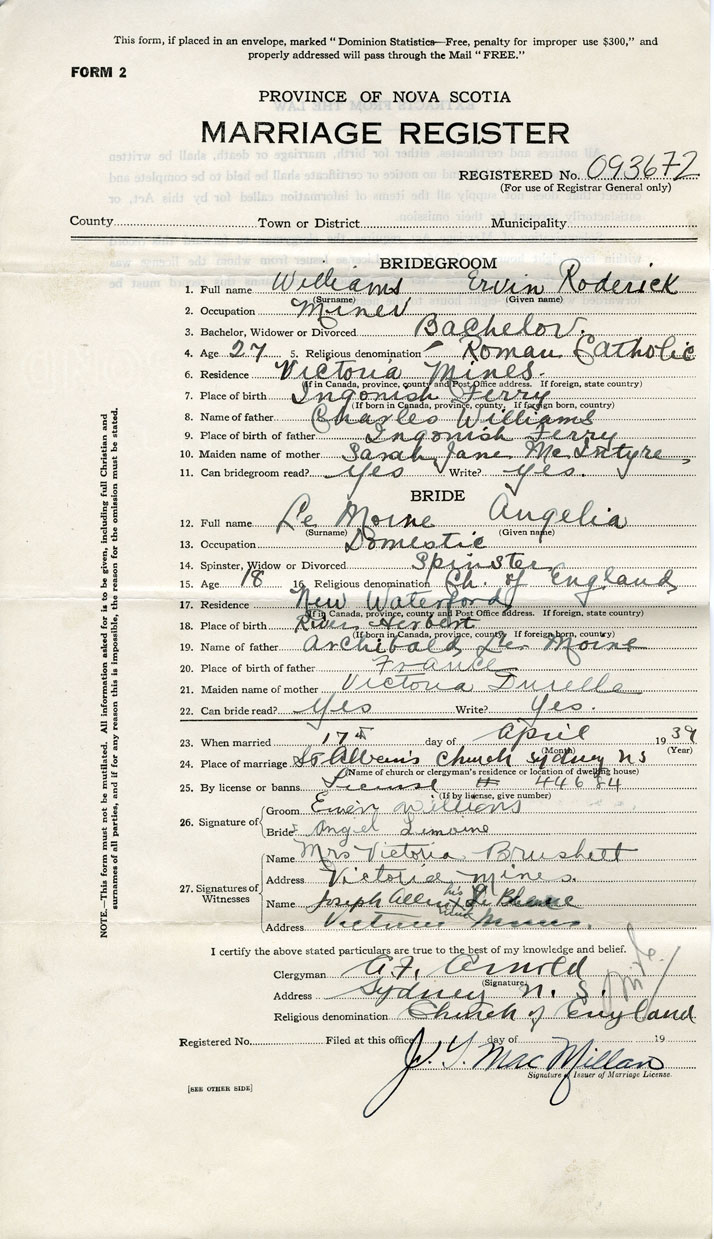 This form, if placed in an envelope, marked "Dominion Statistics—Free, penalty for improper use $300," and
properly addressed will pass through the Mail "FREE."
FORM 2
PROVINCE OF NOVA SCOTIA
MARRIAGE REGISTER
REGISTERED No. 093672
(For use of Registrar General only)
County Town or District Municipality
BRIDEGROOM
1. Full name Williams Ervin Roderick
(Surname) (Given name)
2. Occupation Miner
3. Bachelor, Widower or Divorced Bachelor.
4. Age 27 5. Religious denomination Roman Catholic
6. Residence Victoria Mines.
(If in Canada, province, county and Post Office address. If foreign, state country)
7. Place of birth Ingonish Ferry
(If born in Canada, province, county. If foreign born, country)
8. Name of father Charles Williams
9. Place of birth of father Ingonish Ferry
10. Maiden name of mother Sarah Jane McIntyre
11. Can bridegroom read? yes Write? yes.
BRIDE
12. Full name Le Moine Angelia
(Surname) (Given name)
13. Occupation Domestic
14. Spinster, Widow or Divorced Spinster
15. Age 18 16. Religious denomination Ch. of England
17. Residence New Waterford
(If in Canada, province, county and Post Office address. If foreign, state country)
18. Place of birth River Herbert
(If born in Canada, province, county. If foreign born, country)
19. Name of father Archibald Le Moine
20. Place of birth of father France
21. Maiden name of mother Victoria Durelle
22. Can bride read? Yes Write? Yes.
23. When married 17th day of April 1939
(Month) (Year)
24. Place of marriage St Alban's Church Sydney NS
(Name of church or clergyman's residence or location of dwelling house)
25. By license or banns License # 44684
(If by license, give number)
26. Signature of Groom Ervin Williams
Bride Angel Limoine
27. Signatures of Witnesses Name Mrs Victoria Brushett
Address Victoria mines.
Name Joseph Allen his X mark Le Blanc
Address Victoria Mines.
I certify the above stated particulars are true to the best of my knowledge and belief.
Clergyman A.F. Arnold
(Signature)
Address Sydney N. S.
Religious denomination Church of England
Registered No. Filed at this office day of 19
J. Y. Mac Millan
Signature of Issuer of Marriage License.
[SEE OTHER SIDE]
NOTE.—This form must not be mutilated. All information asked for is to be given, including full Christian and
surnames of all parties, and if for any reason this is impossible, the reason for the omission must be stated.